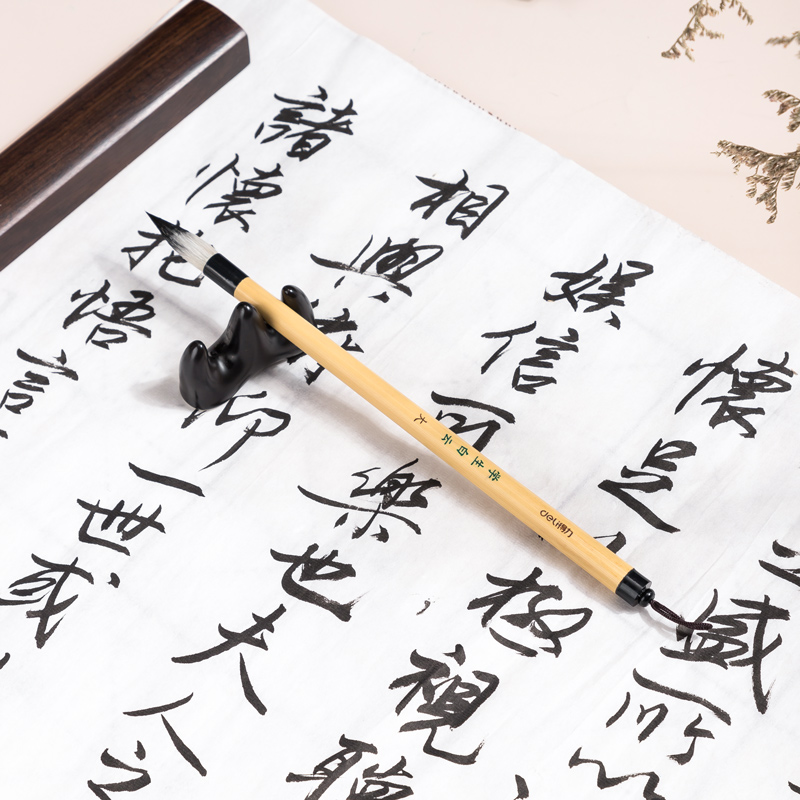 盛所以
懷足極視聽
娛信可樂也夫人之
相與仰一世或
諸懷抱悟言
学生白云 大
deli得力